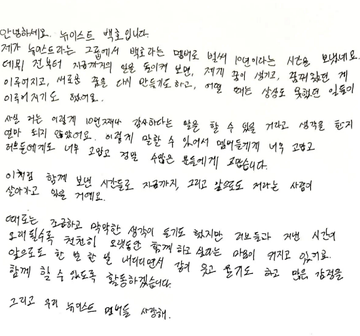 안녕하세요. 뉴이스트 백호입니다.
제가 뉴이스트라는 그룹에서 백호라는 멤버로 벌써 10년이라는 시간을 보냈네요.
데뷔 전부터 지금까지의 일을 돌이켜 보면, 제게 꿈이 생기고, 꿈꿔왔던 게
이루어지고, 새로운 꿈을 다시 만들기도하고, 어떤 때는 상상도 못했던 일들이
이루어지기도 했어요.
사실 저는 이렇게 10번째나 감사하다는 말을 할 수 있을 거라고 생각을 한지
얼마 되지 않았어요. 이렇게 말할 수 있어서 멤버들에게 너무 고맙고
러브들에게도 너무 고맙고 정말 수많은 분들에게 고맙습니다.
이처럼 함께 보낸 시간들로 지금까지, 그리고 앞으로도 저라는 사람이
살아가고 있을 거예요.
때로는 조급하고 막막한 생각이 들기도 했지만 러브들과 지낸 시간이
오래될수록 천천히 오랫동안 함께 하고 싶다는 마음이 커지고 있기로
앞으로도 한 발 한 발 내디디면서 같이 웃고 울기도 하고 많은 감정을
함께 할 수 있도록 활동하겠습니다.
그리고 우리 뉴이스트 멤버들 사랑해.